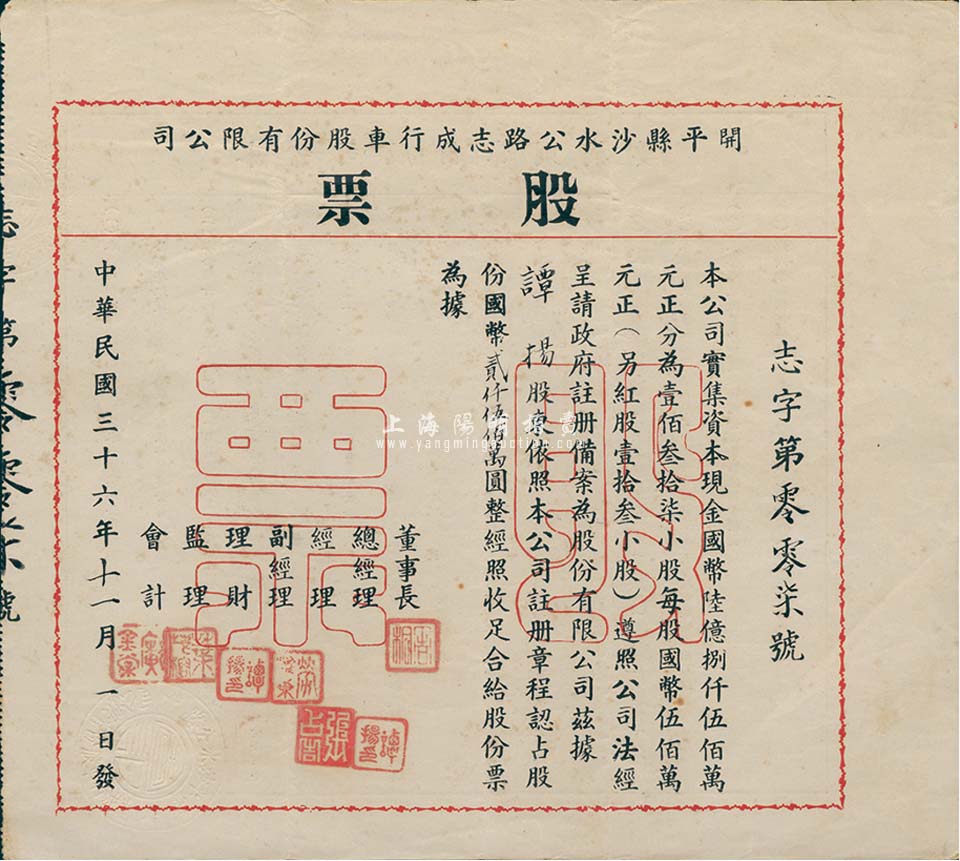 開平縣沙水公路志成行車股份有限公司
股票
志字第零零柒號
本公司實集資本現金國幣陸億捌仟伍佰萬
元正分為壹佰叁拾柒小股每股國幣伍佰萬
元正(另紅股壹拾叁小股)遵照公司法經
呈請政府註册備案為股份有限公司茲據
譚揚股東依照本公司註册章程認占股
份國幣貳仟伍佰萬圓整經照收足合給股份票
為據
董事長
總經理
經理
副經理
理財
監理
會計
中華民國三十六年十一月一日發
志字第零零柒號
上海陽明拍賣
www.yangmingauction.com